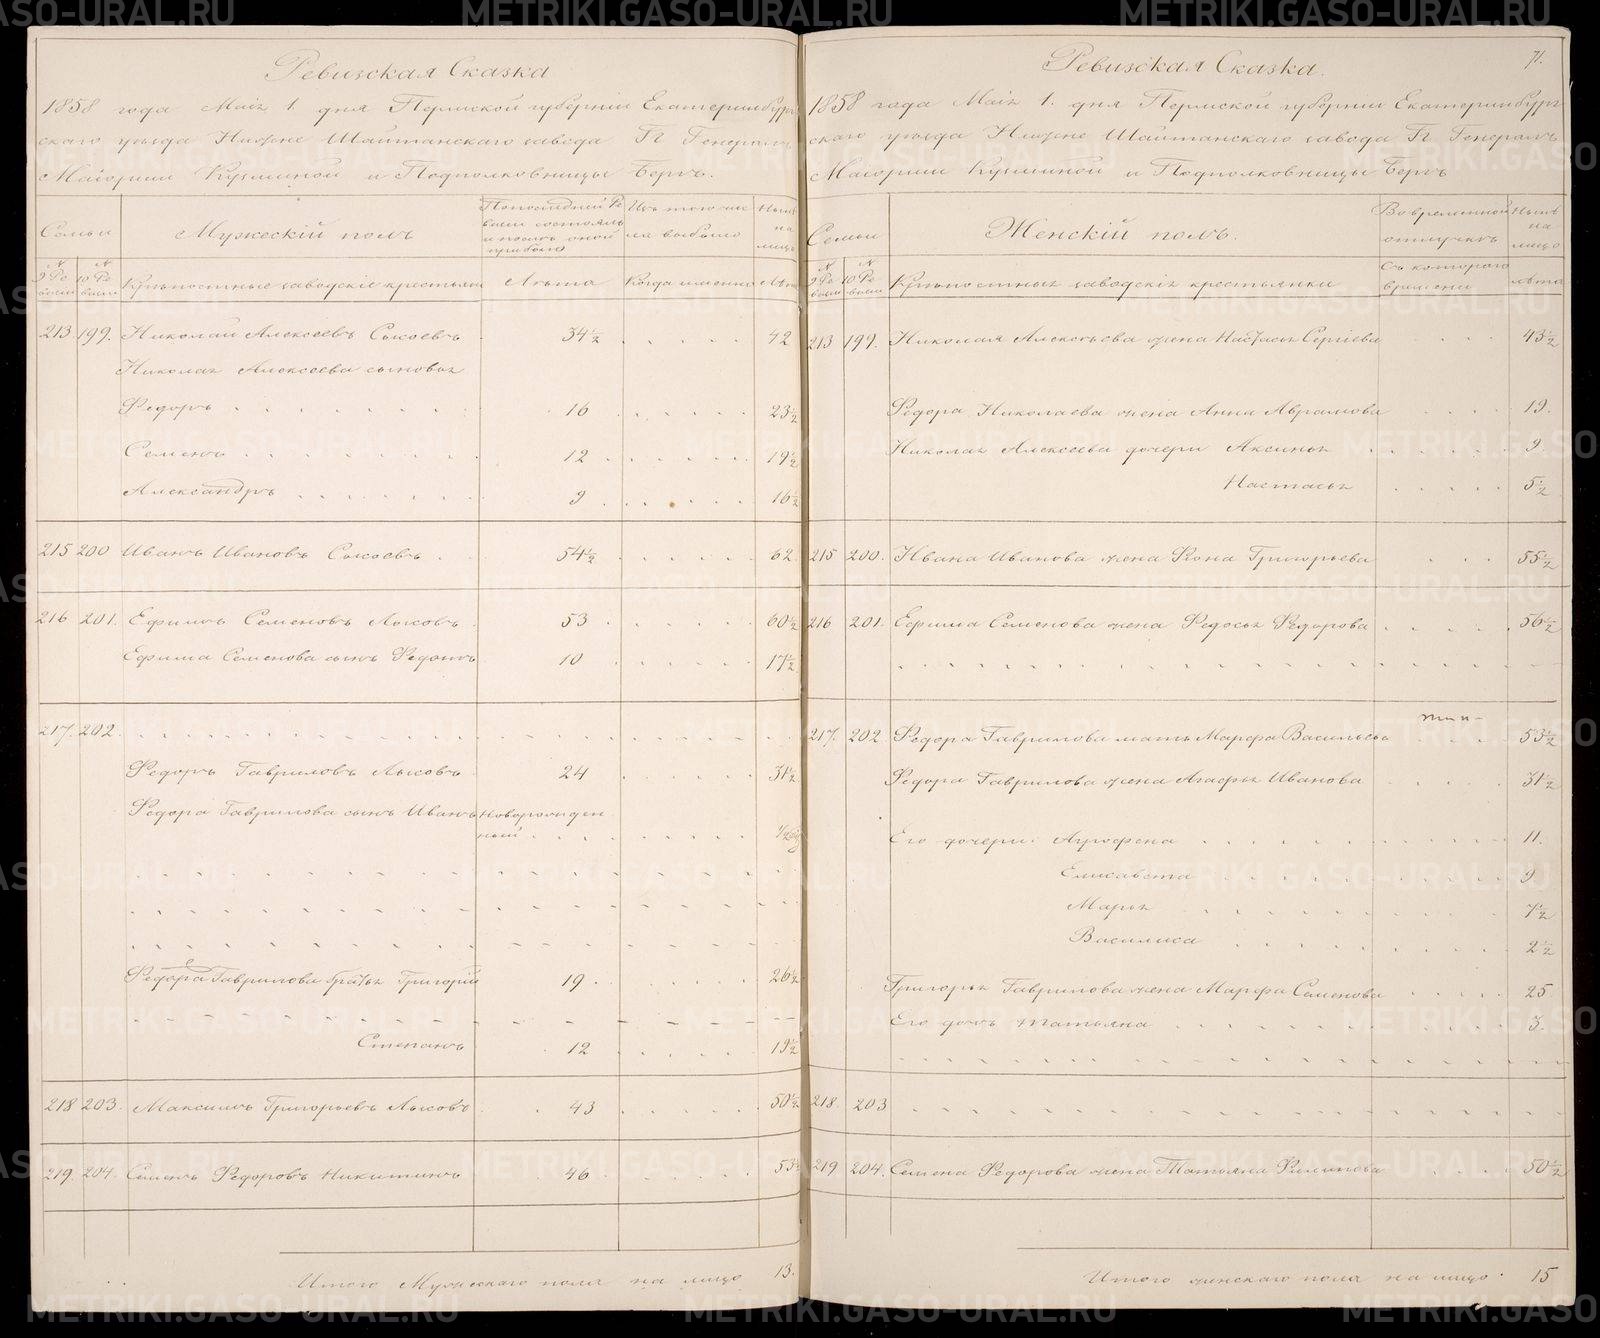 Ревизская Сказка
1858 года Маія 1 дня Пермской губерніи Екатеринбург
скаго уезда Нижне Шайтанскаго завода Гг Генералъ
Маіорши Кузминой и Подполковницы Бергъ.
Семьи
Мужескій полъ
По последней Ре
визіи состояло
и после оной
прибыло
Изъ того чис
ла выбыло
Ныне
на
лицо
№ 9 Ре
визіи
№ 10 Ре
визіи
Крепостные заводскіе крестьяне
Лета
Когда именно
Лета
213 199. Николай Алексеевъ Сысоевъ 34½ 42
Николая Алексеева сыновья
Федоръ 16 23½
Семенъ 12 19½
Александръ 9 16½
215 200 Иванъ Ивановъ Сысоевъ 54½ 62
216 201. Ефимъ Семеновъ Лысовъ 53 60½
Ефима Семенова сынъ 10 17½
217. 202.
Федоръ Гавриловъ Лысовъ 24 31½
Федора Гаврилова сынъ Иванъ Новорожден
ный ½
Федора Гаврилова братья Григорій 19 26½
Степанъ 12 19½
218 203. Максимъ Григорьевъ Лысовъ 43 50½
219. 204. Семенъ Федоровъ Никитинъ 46 53½
Итого Мужескаго пола на лицо 13.
71.
Ревизская Сказка.
1858 года Маія 1. дня Пермской губерніи Екатеринбург
скаго уезда Нижне Шайтанскаго завода Гг Генералъ
Маіорши Кузминой и Подполковницы Бергъ
Семьи
Женскій полъ.
Во временной
отлучке
Ныне
на
лицо
№ 9 Ре
визіи
№ 10 Ре
визіи
Крепостныя заводскія крестьянки
Съ котораго
времени
лета
213 199. Николая Алексеева жена Настасья Сергіева 43½
Федора Николаева жена Анна Аврамова 19.
Николая Алексеева дочери Аксинья 9
Настасья 5½
215 200. Ивана Иванова жена Фіона Григорьева 55½
216 201. Ефима Семенова жена Федосья Федорова 56½
217. 202. Федора Гаврилова мать Марфа Васильева 53½
Федора Гаврилова жена Агафья Иванова 31½
Его дочери: Агрофена 11.
Елисавета 9
Марья 7½
Василиса 2½
Григорья Гаврилова жена Марфа Семенова 25
Его дочь Татьяна 3.
218. 203
219 204. Семена Федорова жена Татьяна Филипова 50½
Итого женскаго пола на лицо. 15
METRIKI.GASO-URAL.RU